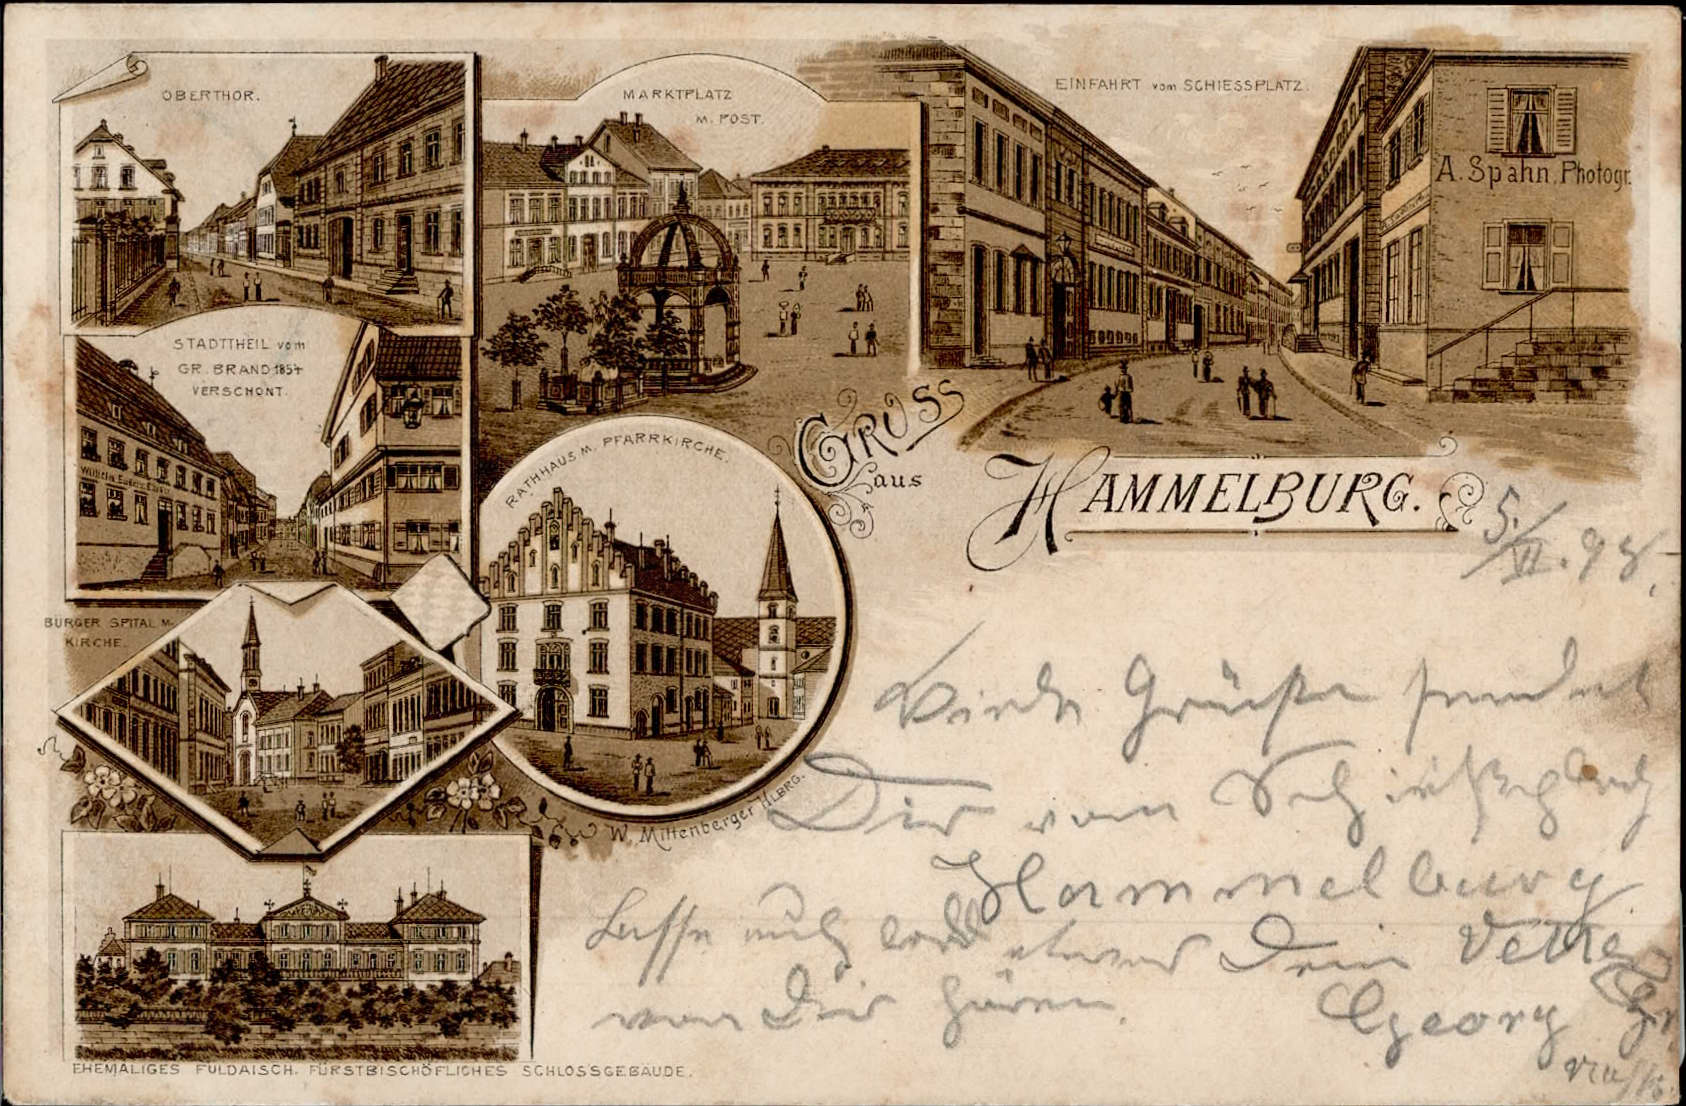 OBERTHOR.
MARKTPLATZ
M. POST.
EINFAHRT vom SCHIESSPLATZ.
A. Spahn, Photogr.
STADTTHEIL vom
GR. BRAND 1854
VERSCHONT.
GRUSS
aus
HAMMELBURG.
RATHHAUS M. PFARRKIRCHE.
BÜRGER SPITAL M.
KIRCHE.
W. Mittenberger HLBRG.
EHEMALIGES FULDAISCH. FÜRSTBISCHÖFLICHES SCHLOSSGEBÄUDE.
5./VI. 98.
Viele Grüße sendet
Dir vom Schießplatz
Hammelburg
Dein Vetter
Georg
Lasse mich bald etwas
von Dir hören.